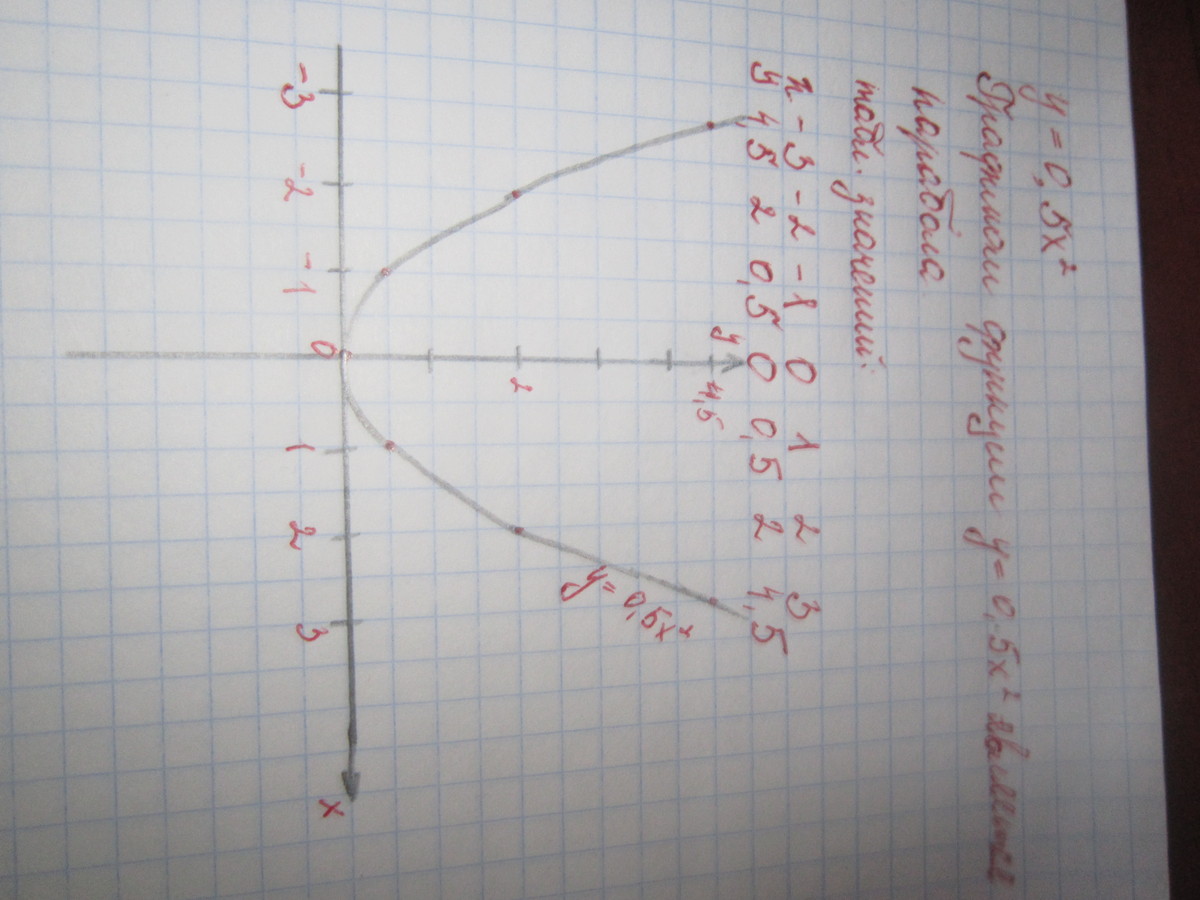 y = 0,5x²
Графиком функции y = 0,5x² является
парабола.
табл. значений:
x -3 -2 -1 0 1 2 3
y 4,5 2 0,5 0 0,5 2 4,5
y
4,5
y = 0,5x²
2
-3 -2 -1 0 1 2 3 x